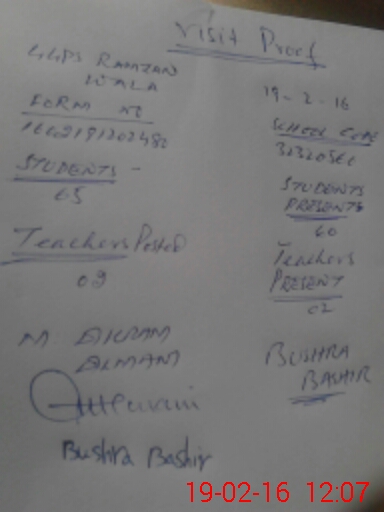 Visit Proof
GGPS RAMZAN
WALA
19-2-16
FORM NO
SCHOOL CODE
STUDENTS -
65
STUDENTS
PRESENTS
60
Teachers Posted
Teachers
PRESENT
02
M AKRAM
BUSHRA
BASHIR
Bushra Bashir
19-02-16 12:07